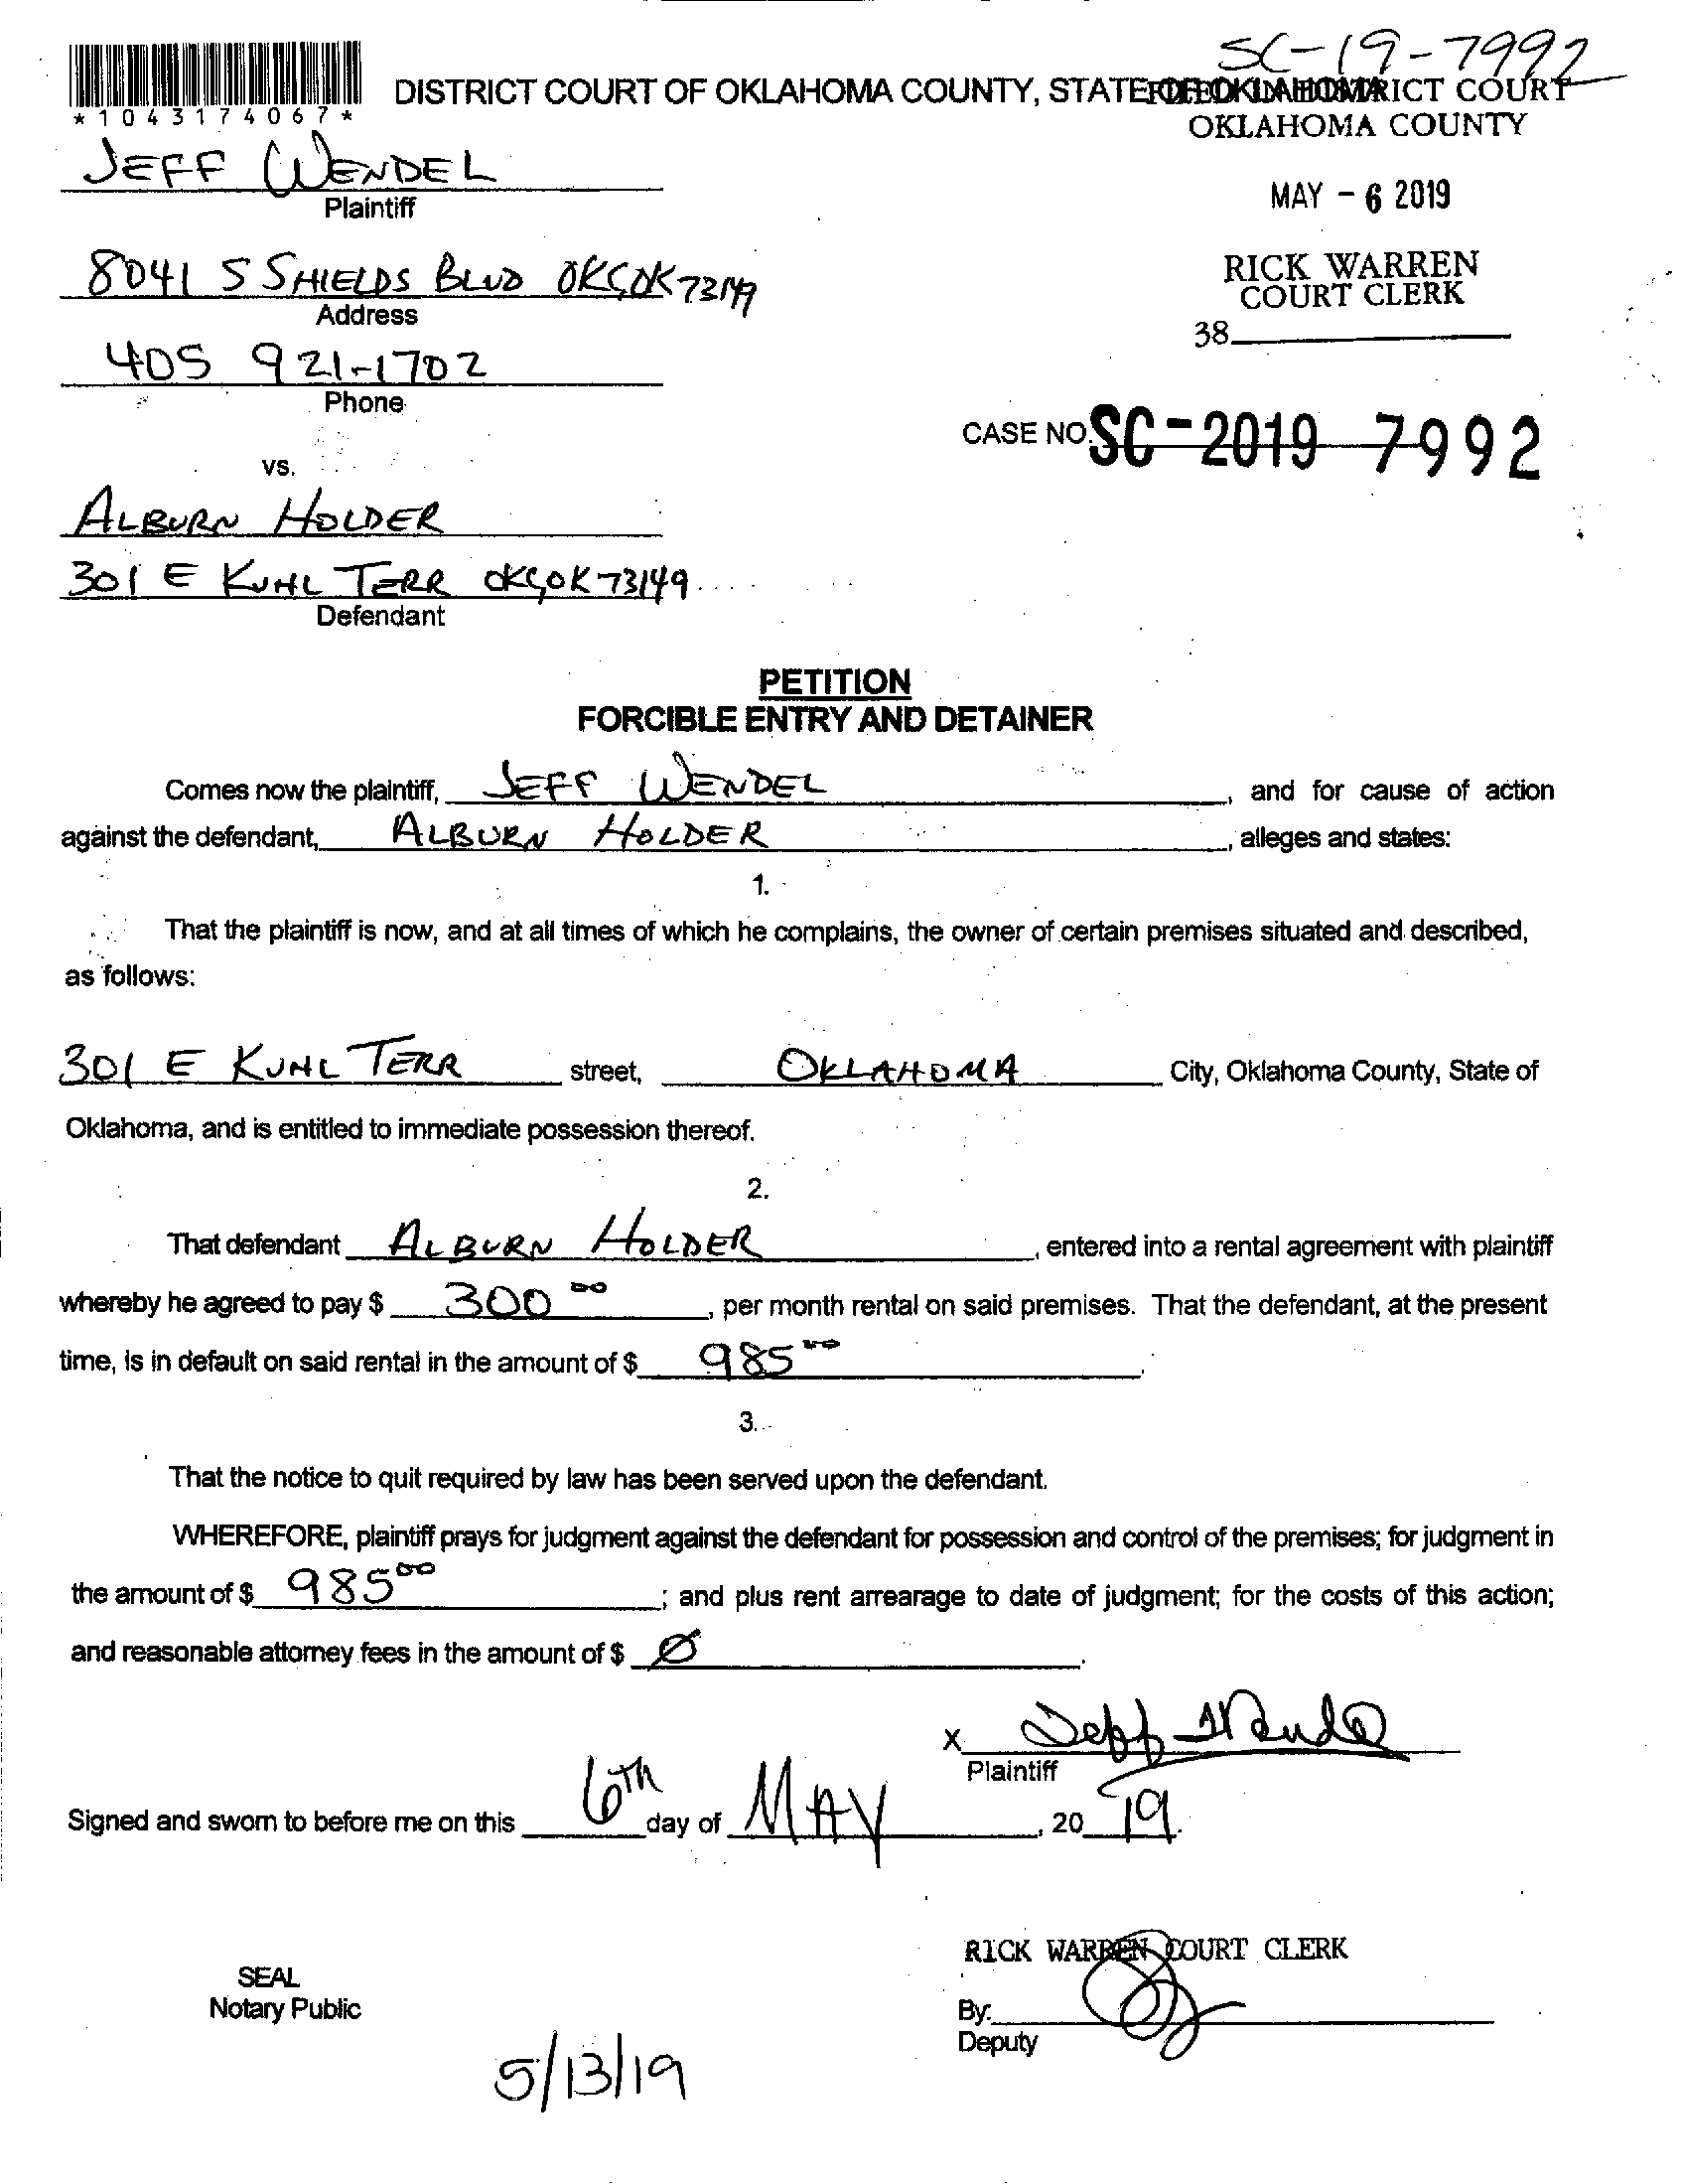 SC-19-7992
*1043174067*
DISTRICT COURT OF OKLAHOMA COUNTY, STATE OF OKLAHOMA
FILED IN DISTRICT COURT
OKLAHOMA COUNTY
JEFF WENDEL
Plaintiff
MAY - 6 2019
8041 S SHIELDS BLVD OKC, OK 73149
Address
RICK WARREN
COURT CLERK
38
405 921-1702
Phone
CASE NO. SC-2019 7992
vs.
ALBURN HOLDER
301 E KUHL TERR OKC, OK 73149
Defendant
PETITION
FORCIBLE ENTRY AND DETAINER
Comes now the plaintiff, JEFF WENDEL, and for cause of action
against the defendant, ALBURN HOLDER, alleges and states:
1.
That the plaintiff is now, and at all times of which he complains, the owner of certain premises situated and described,
as follows:
301 E KUHL TERR street, OKLAHOMA City, Oklahoma County, State of
Oklahoma, and is entitled to immediate possession thereof.
2.
That defendant ALBURN HOLDER, entered into a rental agreement with plaintiff
whereby he agreed to pay $ 300 00, per month rental on said premises. That the defendant, at the present
time, is in default on said rental in the amount of $ 985 00.
3.
That the notice to quit required by law has been served upon the defendant.
WHEREFORE, plaintiff prays for judgment against the defendant for possession and control of the premises; for judgment in
the amount of $ 985 00; and plus rent arrearage to date of judgment; for the costs of this action;
and reasonable attorney fees in the amount of $ Ø.
X Jeff Wendel
Plaintiff
Signed and sworn to before me on this 6Th day of MAY, 20 19.
RICK WARREN COURT CLERK
SEAL
Notary Public
By:
Deputy
5/13/19